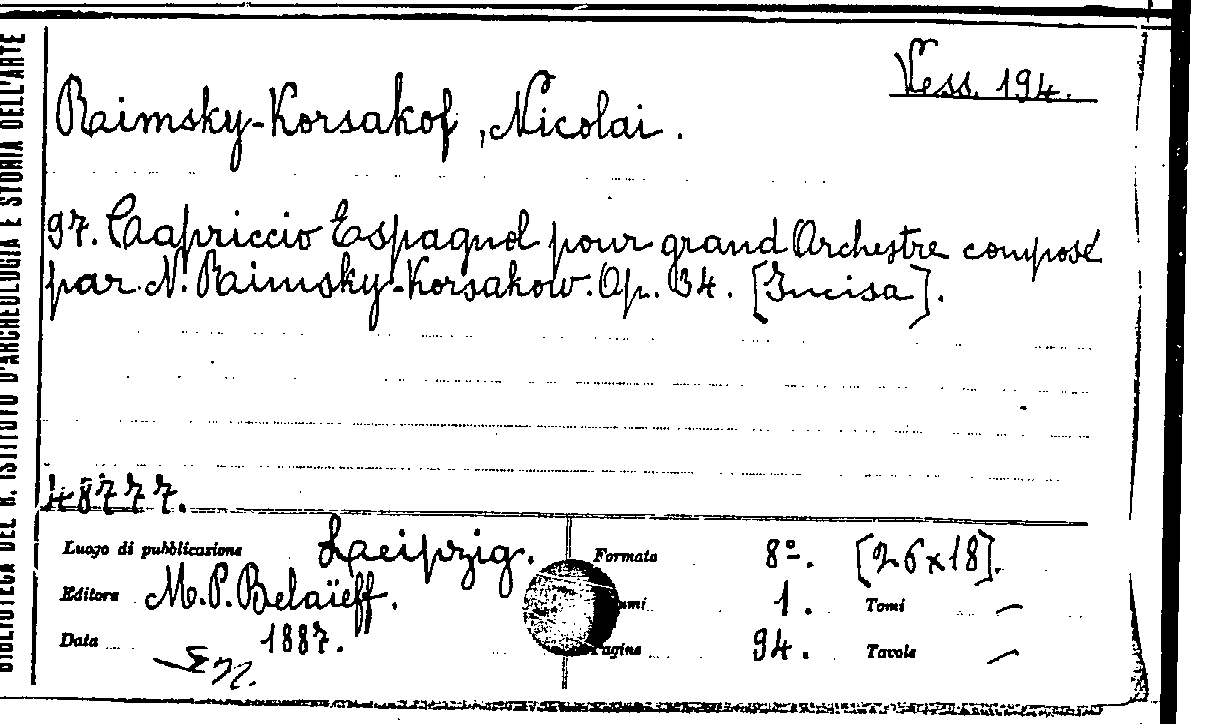 BIBLIOTECA DEL R. ISTITUTO D'ARCHEOLOGIA E STORIA DELL'ARTE
Vess. 194.
Raimsky-Korsakof, Nicolai.
97. Capriccio Espagnol pour grand Orchestre composé
par N. Raimsky-Korsakow. Op. 34. [Incisa].
48777.
Luogo di pubblicazione Laeipzig. Formato 8º. [26x18].
Editore M.P. Belaïeff. 1. Tomi —
Data 1887. Pagine 94. Tavole —